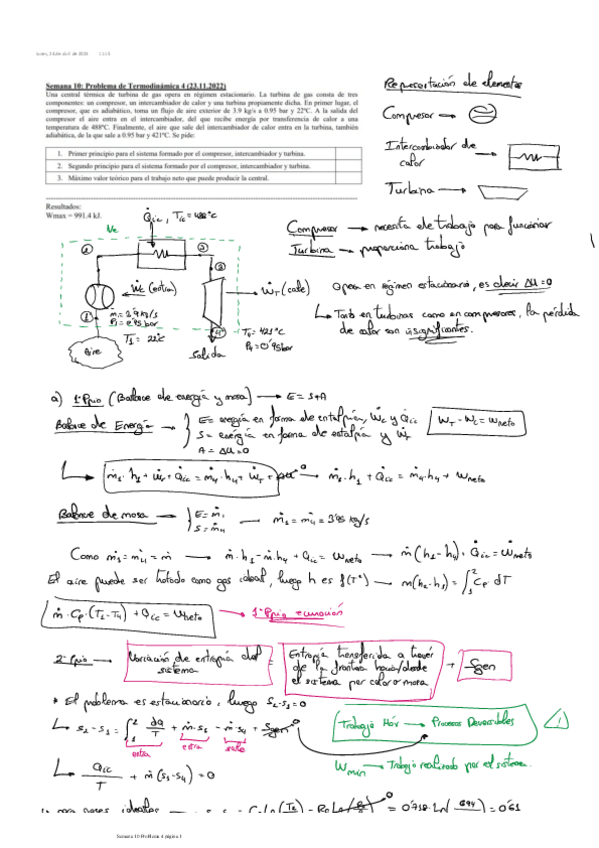 Semana 10: Problema de Termodinámica 4 (23.11.2022)
Una central térmica de turbina de gas opera en régimen estacionario. La turbina de gas consta de tres
componentes: un compresor, un intercambiador de calor y una turbina propiamente dicha. En primer lugar, el
compresor, que es adiabático, toma un flujo de aire exterior de 3.9 kg/s a 0.95 bar y 22ºC. A la salida del
compresor el aire entra en el intercambiador, del que recibe energía por transferencia de calor a una
temperatura de 488ºC. Finalmente, el aire que sale del intercambiador de calor entra en la turbina, también
adiabática, de la que sale a 0.95 bar y 421ºC. Se pide:
1. Primer principio para el sistema formado por el compresor, intercambiador y turbina.
2. Segundo principio para el sistema formado por el compresor, intercambiador y turbina.
3. Máximo valor teórico para el trabajo neto que puede producir la central.
Resultados:
Wmax = 991.4 kJ.
Representación de elementos
Compresor →
Intercambiador de calor →
Turbina →
Q̇ic, Tic = 488°C
Vc
1
2
3
4
Ẇc (entra)
ẆT (sale)
ṁ = 3'9 kg/s
P1 = 0'95 bar
T1 = 22°C
Aire
Salida
T4 = 421°C
P4 = 0'95 bar
Compresor → necesita de trabajo para funcionar
Turbina → proporciona trabajo
Opera en régimen estacionario, es decir ΔU = 0
↳ Tanto en turbinas como en compresores, la pérdida
de calor son insignificantes.
a) 1º Ppio (Balance de energía y masa) → E = S+A
Balance de Energía →
E = energía en forma de entalpía, Ẇc y Q̇ic
S = energía en forma de entalpía y ẆT
A = ΔU = 0
ẆT - Ẇc = Ẇneto
ṁ1·h1 + Ẇc + Q̇ic = ṁ4·h4 + ẆT → ṁ1·h1 + Q̇ic = ṁ4·h4 + Ẇneto
Balance de masa →
E = ṁ1
S = ṁ4
→ ṁ1 = ṁ4 = 3'95 kg/s
Como ṁ1 = ṁ4 = ṁ → ṁ·h1 - ṁ·h4 + Q̇ic = Ẇneto → ṁ(h1-h4) + Q̇ic = Ẇneto
El aire puede ser tratado como gas ideal, luego h es f(Tº) →
ṁ·Cp·(T1-T4) + Q̇ic = Ẇneto → 1º Ppio ecuación
2º Ppio → Variación de entropía del sistema = Entropía transferida a través
de la frontera hacia/desde
el sistema por calor o masa + Sgen
* El problema es estacionario, luego S2-S1=0
entra
entra
sale
Trabajo Máx → Procesos Reversibles
Q̇ic/T + ṁ(S1-S4) = 0
→ Trabajo realizado por el sistema.
Semana 10 Problema 4 página 1